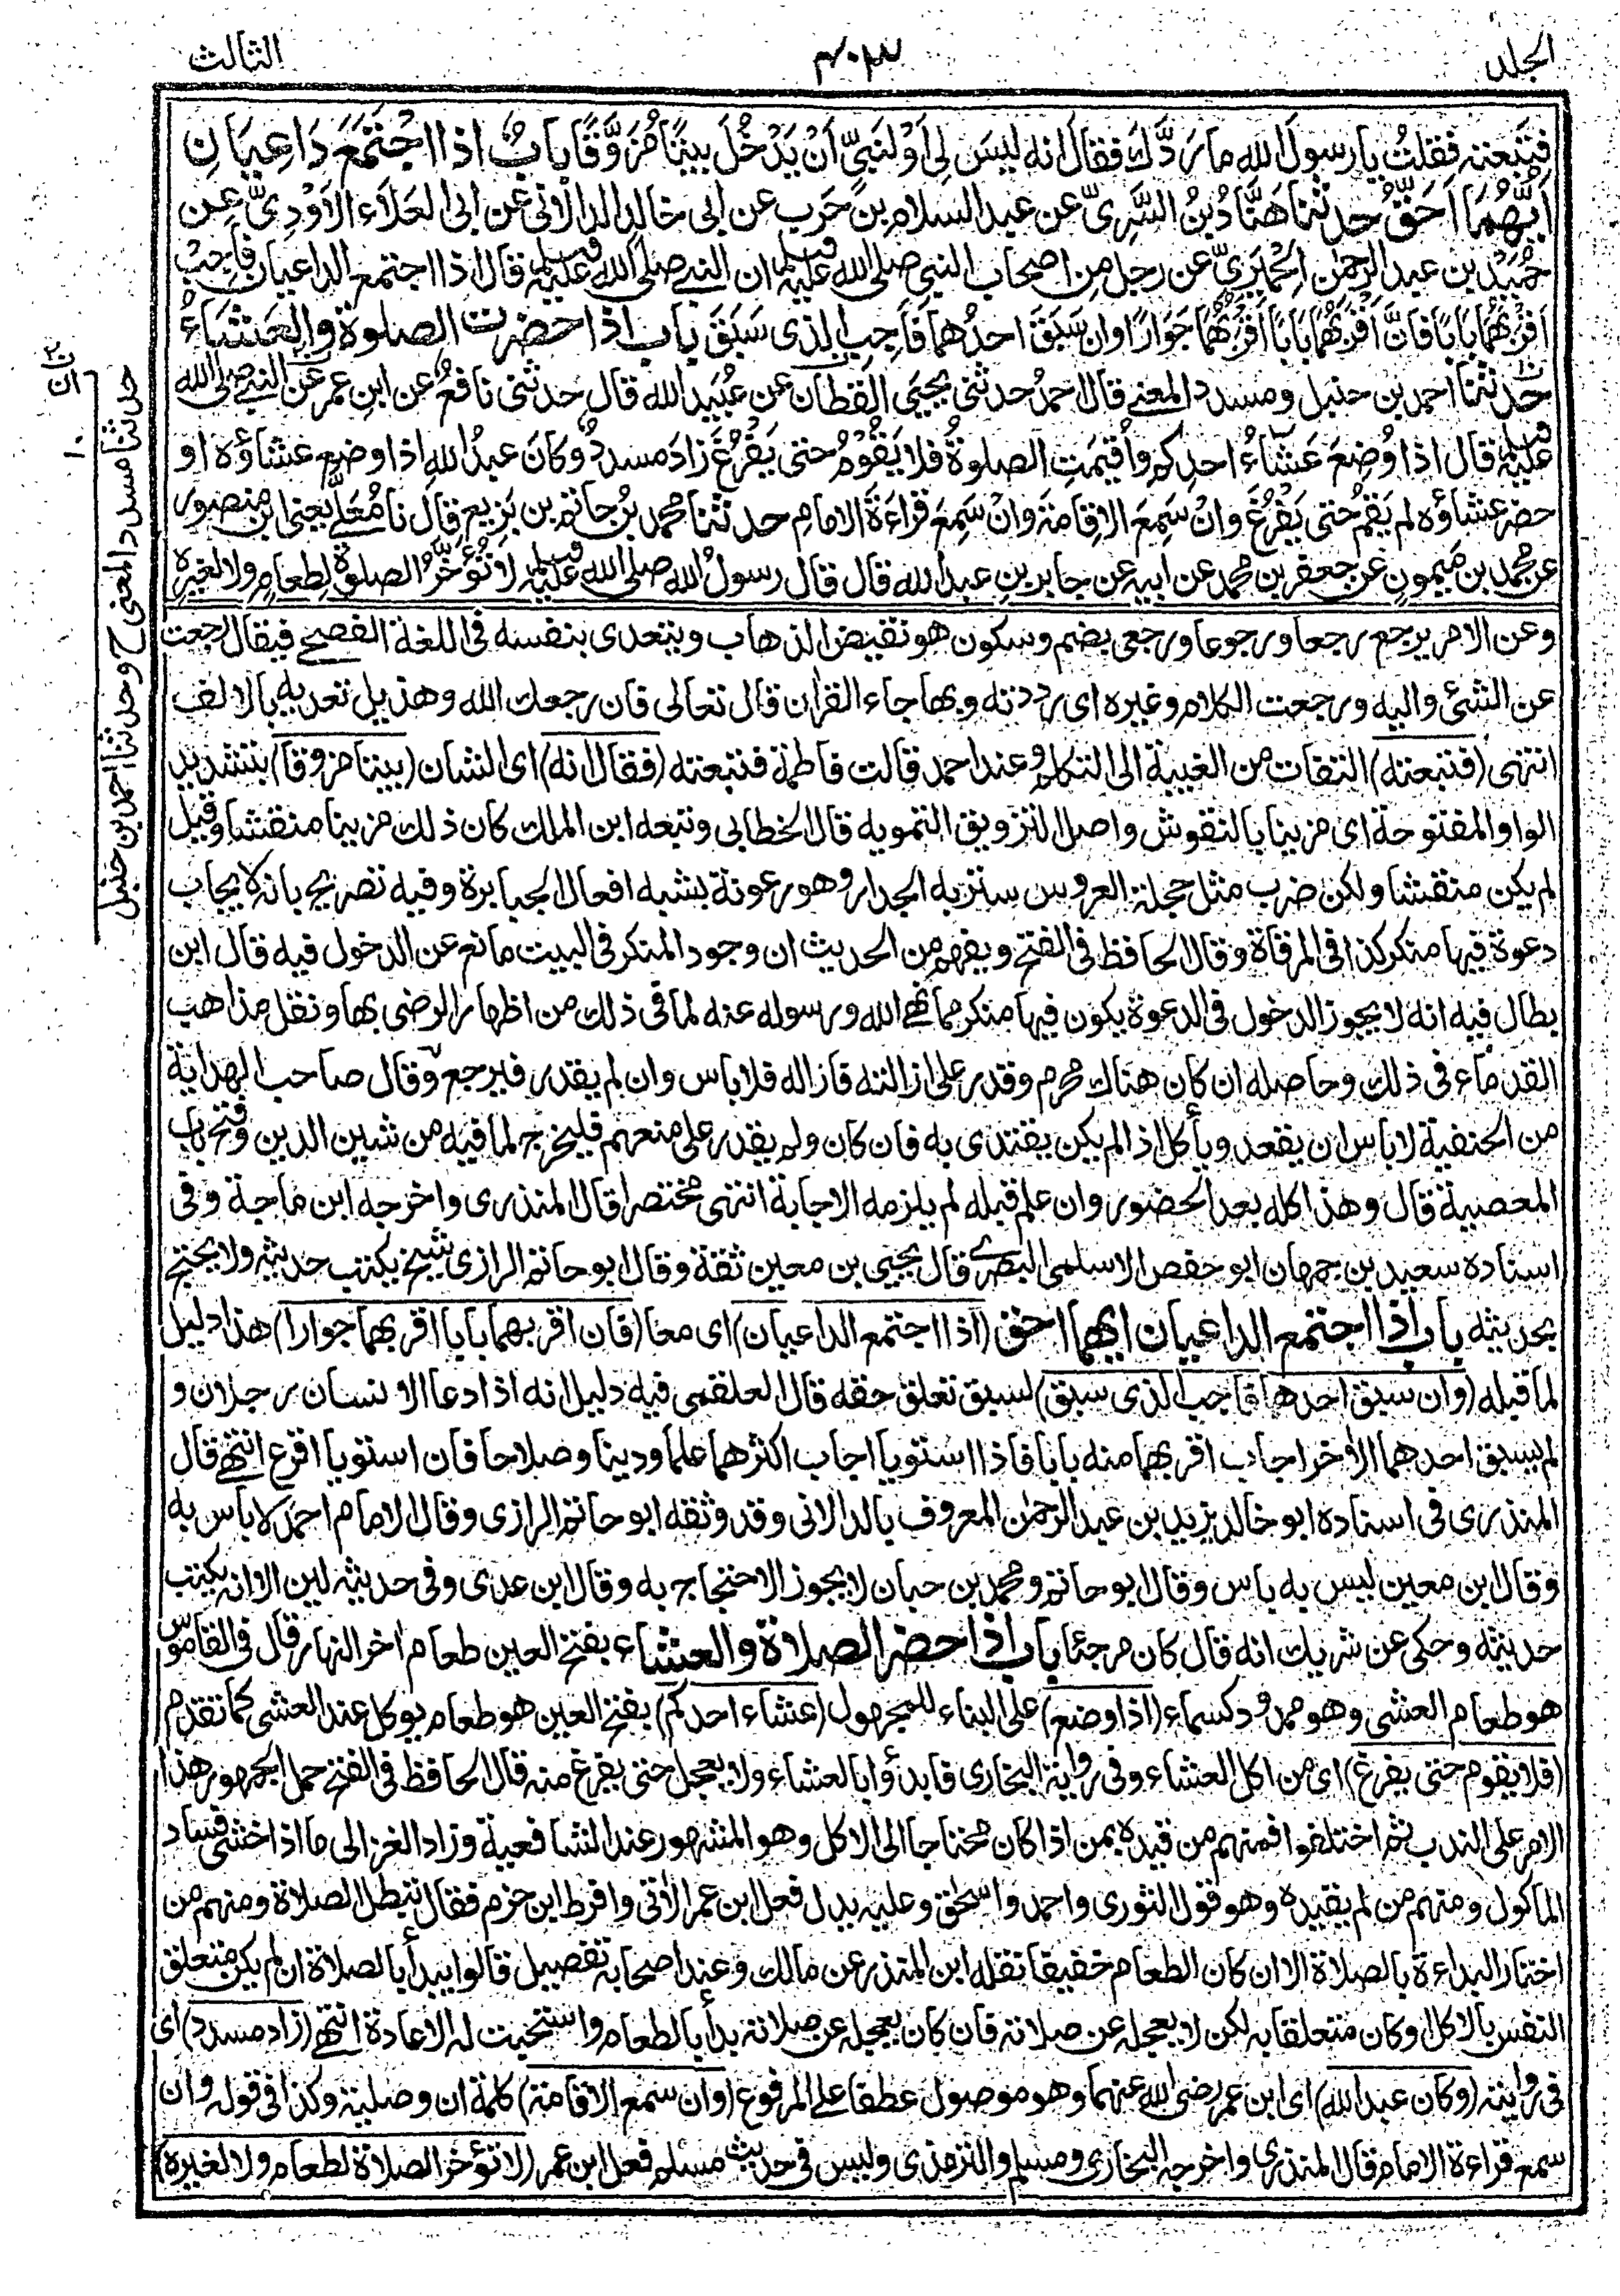 الجلد
٤٠٣
الثالث
فتَبعته فقلتُ يا رسولَ الله ما رَدَّكَ فقال انه ليسَ لِى اَوْ لنَبىٍّ اَنْ يَدْخُلَ بيتًا مُزَوَّقًا بابٌ اذا اجْتَمَعَ دَاعِيَانِ
اَيُّهُمَا اَحَقُّ حدثنا هنَّادُ بنُ السَّرِىِّ عن عبد السلام بن حَرب عن ابى خالد الدالانى عن ابى العَلَاء الاَوْدِىِّ عن
حُمَيْد بن عبد الرحمٰن الحِمْيَرىِّ عن رجل من اصحاب النبى صلى الله عليه وسلم ان النبى صلى الله عليه وسلم قال اذا اجتمع الداعيان فاَجِبْ
اَقْرَبَهُما بَابًا فَانَّ اَقْرَبَهُمَا بَابًا اَقْرَبُهُمَا جَوَارًا وان سَبَقَ احدُهما فاَجِبِ الذى سَبَقَ باب اذا حضرت الصلوة والعَشَاءُ
حدثنا احمد بن حنبل ومسدد المعنى قال احمدُ حدثنى يحيَى القطان عن عُبَيد الله قال حدثنى نافعٌ عن ابنِ عمر عن النبى صلى الله
عليه وسلم قال اذا وُضِعَ عَشَاءُ احدِكم واُقيمَتِ الصلوةُ فلا يَقُوْمُ حتى يَفْرُغَ زادَ مسددٌ وكانَ عبدُ اللهِ اذا وضع عشاؤه او
حضر عشاؤه لم يَقُمْ حتى يَفْرُغَ وانْ سَمِعَ الاِقامَةَ وانْ سَمِعَ قراءةَ الامامِ حدثنا محمد بنُ حاتم بن بَزِيع قال نا مُعَلًّى يعنى ابن منصور
عن محمد بن مَيمونٍ عن جعفر بن محمد عن ابيه عن جابر بن عبد الله قال قال رسولُ الله صلى الله عليه وسلم لا تُؤَخَّرُ الصلوةُ لِطعامٍ ولا لغيرِه
وعن الامر يرجع رجعا ورجوعا ورجعى بضم وسكون هو نقيض الذهاب ويتعدى بنفسه فى اللغة الفصحى فيقال رجعت
عن الشئ واليه ورجعت الكلام وغيره اى رددته وبها جاء القرآن قال تعالى فان رجعك الله وهذيل تعديه بالالف
انتهى (فتبعته) التفات من الغيبة الى التكلم وعند احمد قالت فاطمة فتبعته (فقال انه) اى الشان (بيتا مزوقا) بتشديد
الواو المفتوحة اى مزينا بالنقوش واصل التزويق التمويه قال الخطابى وتبعه ابن الملك كان ذلك مزينا منقشا وقيل
لم يكن منقشا ولكن ضرب مثل حجلة العروس ستر به الجدار وهو رعونة يشبه افعال الجبابرة وفيه تصريح بانه لا يجاب
دعوة فيها منكر كذا فى المرقاة وقال الحافظ فى الفتح ويفهم من الحديث ان وجود المنكر فى البيت مانع عن الدخول فيه قال ابن
بطال فيه انه لا يجوز الدخول فى الدعوة يكون فيها منكر مما نهى الله ورسوله عنه لما فى ذلك من اظهار الرضى بها ونقل مذاهب
القدماء فى ذلك وحاصله ان كان هناك محرم وقدر على ازالته فازاله فلا باس وان لم يقدر فليرجع وقال صاحب الهداية
من الحنفية لا باس ان يقعد ويأكل اذا لم يكن يقتدى به فان كان ولم يقدر على منعهم فليخرج لما فيه من شين الدين وفتح باب
المعصية قال وهذا كله بعد الحضور وان علم قبله لم يلزمه الاجابة انتهى مختصرا قال المنذرى واخرجه ابن ماجة وفى
اسناده سعيد بن جمهان ابو حفص الاسلمى البصرى قال يحيى بن معين ثقة وقال ابو حاتم الرازى شيخ يكتب حديثه ولا يحتج
بحديثه باب اذا اجتمع الداعيان ايهما احق (اذا اجتمع الداعيان) اى معا (فان اقربهما بابا اقربهما جوارا) هذا دليل
لما قبله (وان سبق احدهما فاجب الذى سبق) لسبق تعلق حقه قال العلقمى فيه دليل انه اذا دعا الانسان رجلان و
لم يسبق احدهما الآخر اجاب اقربهما منه بابا فاذا استويا اجاب اكثرهما علما ودينا وصلاحا فان استويا اقرع انتهى قال
المنذرى فى اسناده ابو خالد يزيد بن عبد الرحمٰن المعروف بالدالانى وقد وثقه ابو حاتم الرازى وقال الامام احمد لا باس به
وقال ابن معين ليس به باس وقال ابو حاتم ومحمد بن حبان لا يجوز الاحتجاج به وقال ابن عدى وفى حديثه لين الا انه يكتب
حديثه وحكى عن شريك انه قال كان مرجئا باب اذا حضر الصلاة والعشاء بفتح العين طعام اخر النهار قال فى القاموس
هو طعام العشى وهو ممدود كسماء (اذا وضع) على البناء للمجهول (عشاء احدكم) بفتح العين هو طعام يوكل عند العشى كما تقدم
(فلا يقوم حتى يفرغ) اى من اكل العشاء وفى رواية البخارى فابدؤا بالعشاء ولا يعجل حتى يفرغ منه قال الحافظ فى الفتح حمل الجمهور هذا
الامر على الندب ثم اختلفوا فمنهم من قيده بمن اذا كان محتاجا الى الاكل وهو المشهور عند الشافعية وزاد الغزالى ما اذا خشى فساد
الماكول ومنهم من لم يقيده وهو قول الثورى واحمد واسحٰق وعليه يدل فعل ابن عمر الآتى وافرط ابن حزم فقال تبطل الصلاة ومنهم من
اختار البداءة بالصلاة الا ان كان الطعام خفيفا نقله ابن المنذر عن مالك وعند اصحابه تفصيل قالوا يبدأ بالصلاة ان لم يكن متعلق
النفس بالاكل او كان متعلقا به لكن لا يعجله عن صلاته فان كان يعجله عن صلاته بدأ بالطعام واستحبت له الاعادة انتهى (زاد مسدد) اى
فى روايته (وكان عبد الله) اى ابن عمر رضى الله عنهما وهو موصول عطفا على المرفوع (وان سمع الاقامة) كلمة ان وصلية وكذا فى قوله وان
سمع قراءة الامام قال المنذرى واخرجه البخارى ومسلم والترمذى وليس فى حديث مسلم فعل ابن عمر (لا تؤخر الصلاة لطعام ولا لغيره)
حدثنا مسدد المعنى ح وحدثنا احمد بن حنبل